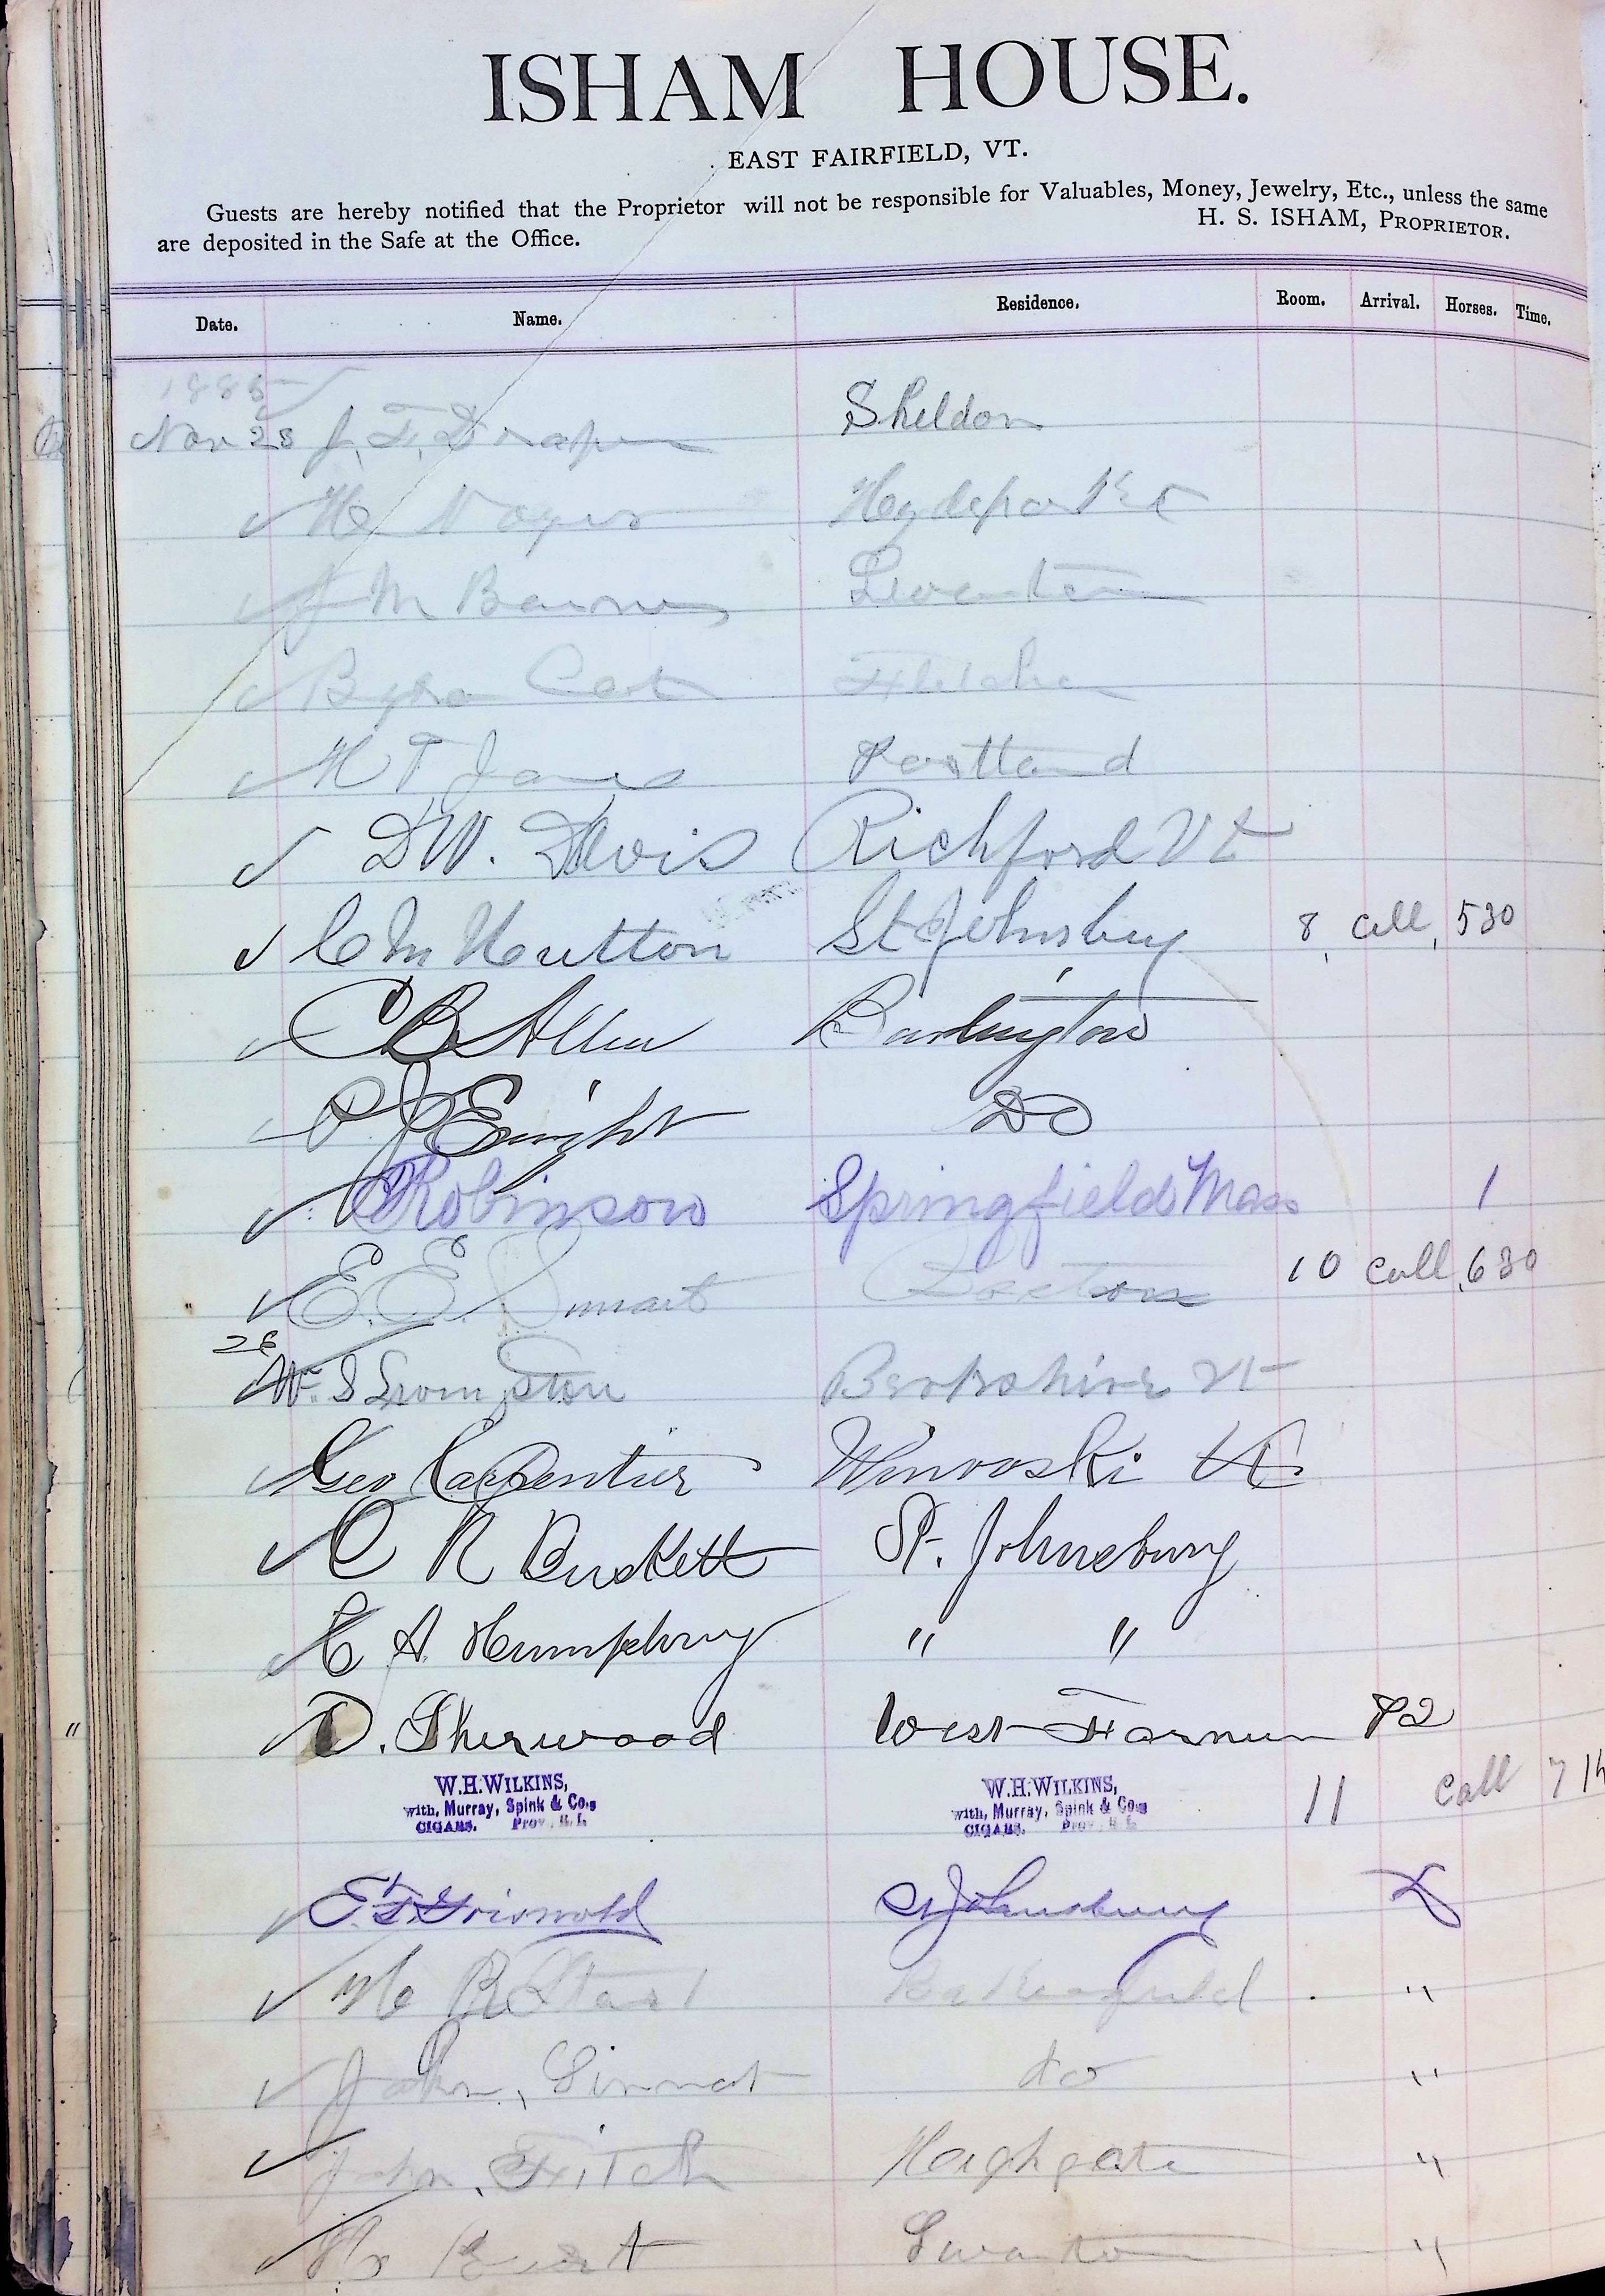 ISHAM HOUSE.
EAST FAIRFIELD, VT.
Guests are hereby notified that the Proprietor will not be responsible for Valuables, Money, Jewelry, Etc., unless the same
are deposited in the Safe at the Office. H. S. ISHAM, PROPRIETOR.
Date. Name. Residence. Room. Arrival. Horses. Time.
1885
Nov 25 J. F. Draper Sheldon
Hydepark
J M
Fletcher
H T Portland
D W. Davis Richford Vt
C M Hutton St Johnsbury 8, call, 530
C B Allen Burlington
P J Enright DO
Robinson Springfield Mass 1
E. E. Smart Boston 10 call, 630
26
W. S Berkshire Vt
Geo Carpentier Winooski Vt
C N St. Johnsbury
C A. Humphrey " "
D. Sherwood West Farnum P2
W.H. WILKINS, W.H. WILKINS,
with, Murray, Spink & Co., with, Murray, Spink & Co.,
CIGARS. Prov. R.I. CIGARS. Prov. R.I.
11 call 7
E. F. Griswold St Johnsbury
Bakersfield "
John, Sinnot do "
John, Fitch Heighgate "
Swanton "